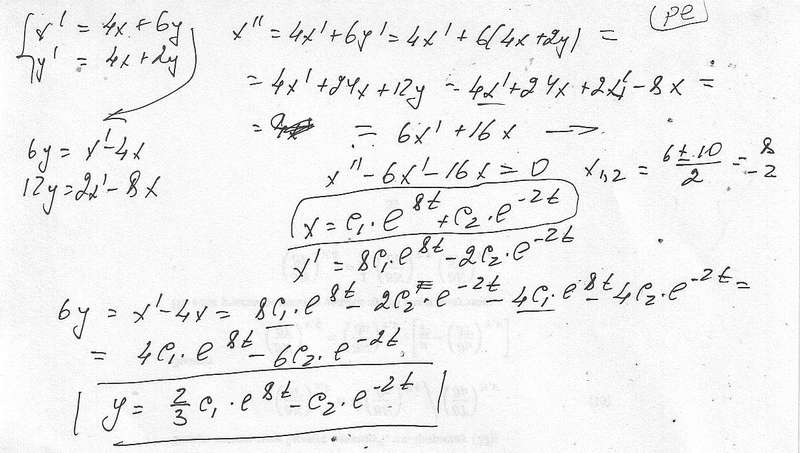 (pe)
x' = 4x + 6y
y' = 4x + 2y
x'' = 4x' + 6y' = 4x' + 6(4x + 2y) =
= 4x' + 24x + 12y = 4x' + 24x + 2x' - 8x =
= 6x' + 16x →
6y = x' - 4x
12y = 2x' - 8x
x'' - 6x' - 16x = 0 x₁,₂ = (6 ± 10)/2 = 8 -2
x = C₁·e^{8t} + C₂·e^{-2t}
x' = 8C₁·e^{8t} - 2C₂·e^{-2t}
6y = x' - 4x = 8C₁·e^{8t} - 2C₂·e^{-2t} - 4C₁·e^{8t} - 4C₂·e^{-2t} =
= 4C₁·e^{8t} - 6C₂·e^{-2t}
y = 2/3 C₁·e^{8t} - C₂·e^{-2t}